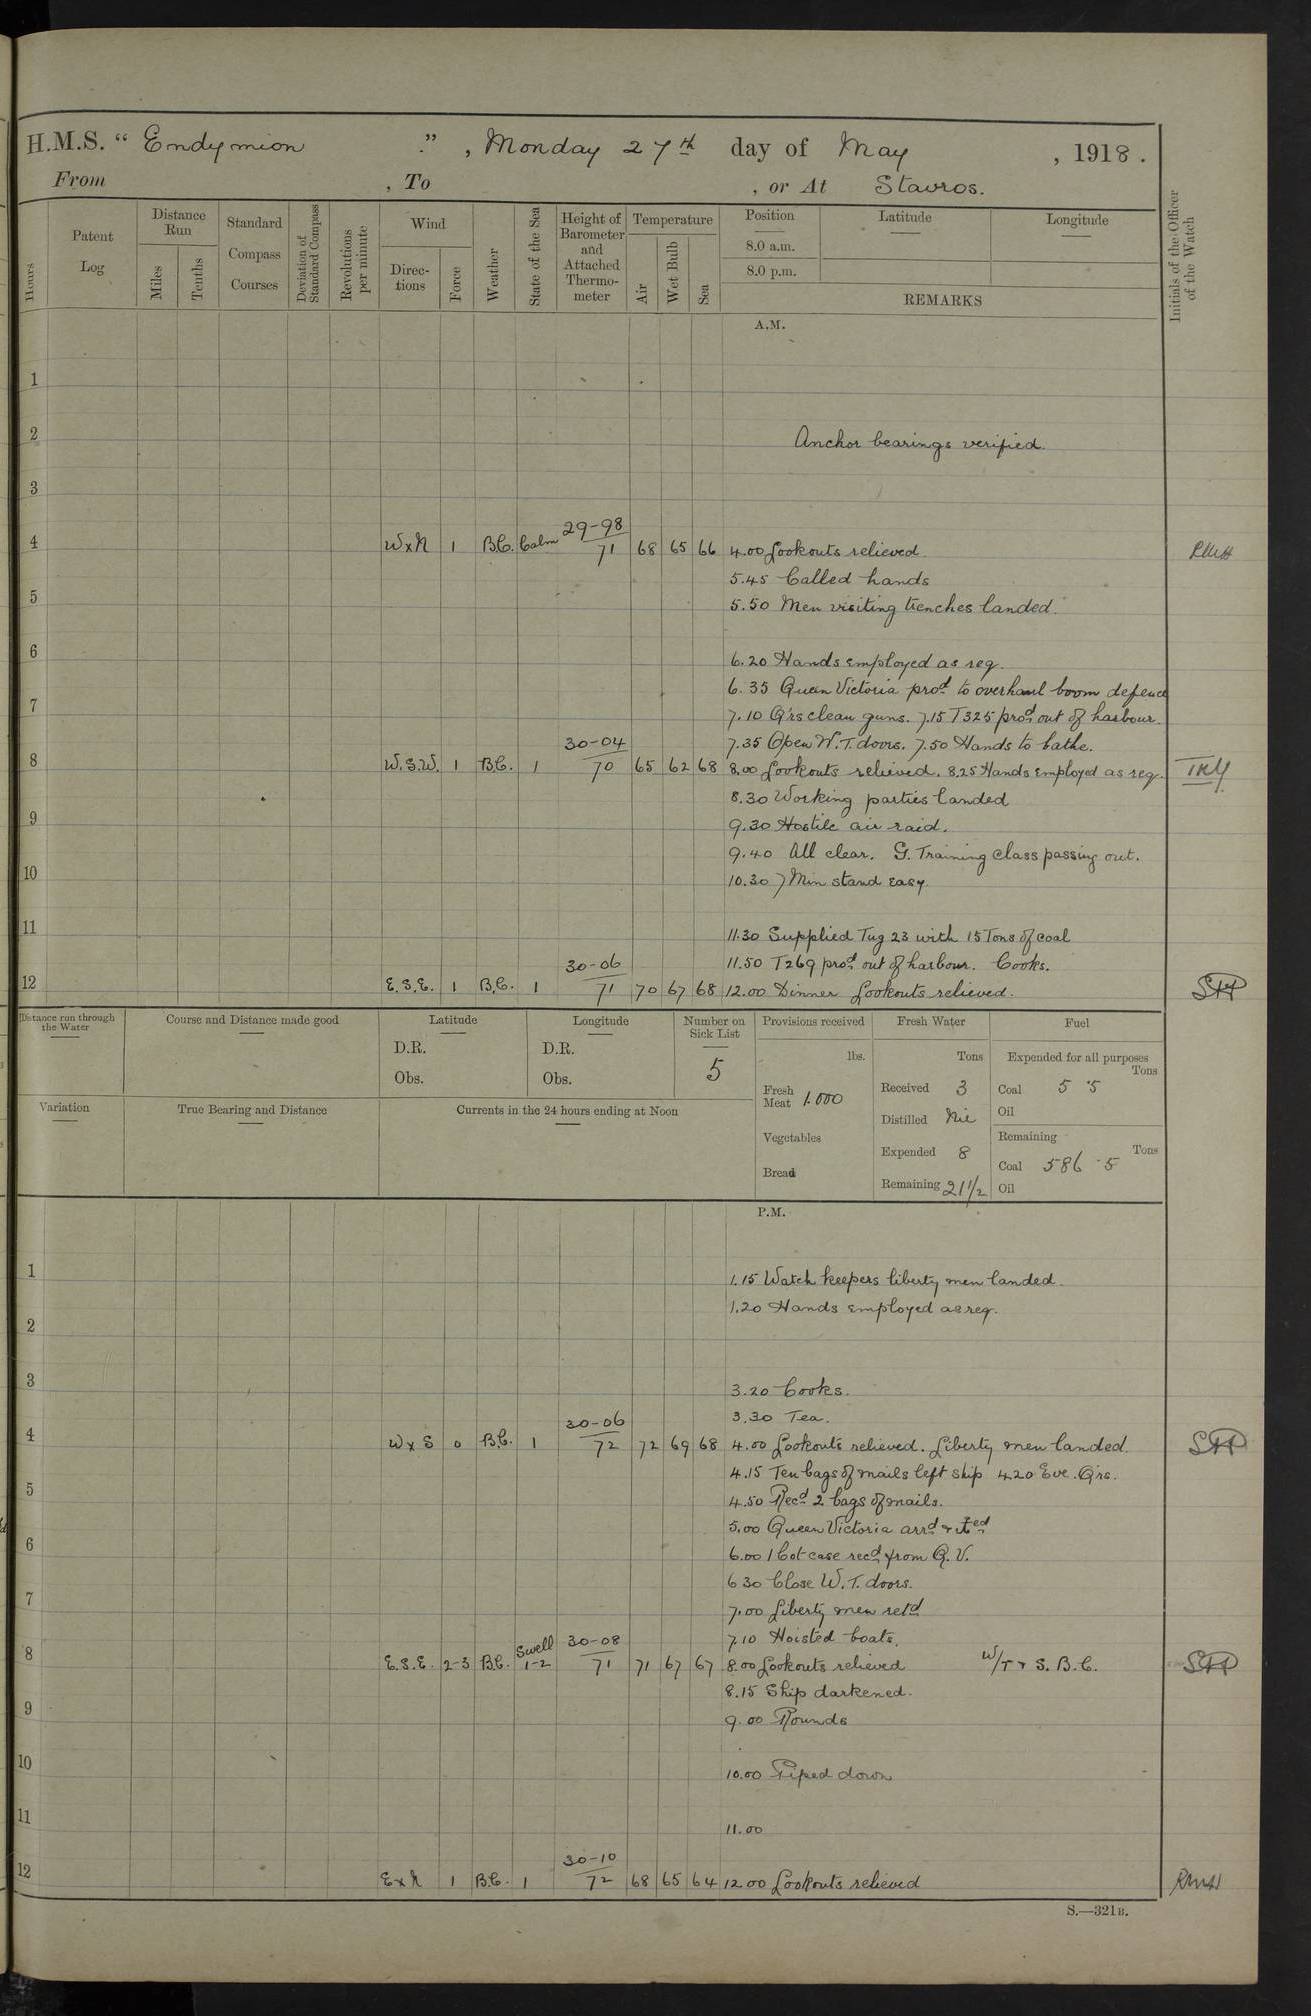 H.M.S. “ Endymion ” , Monday 27th day of May , 1918 .
From , To , or At Stavros.
Hours
Patent Log
Distance Run
Miles
Tenths
Standard Compass Courses
Deviation of Standard Compass
Revolutions per minute
Wind
Direc-tions
Force
Weather
State of the Sea
Height of Barometer and Attached Thermo-meter
Temperature
Air
Wet Bulb
Sea
Position
8.0 a.m.
8.0 p.m.
Latitude
Longitude
REMARKS
Initials of the Officer of the Watch
A.M.
1
2 Anchor bearings verified.
3
29-98
4 WxN 1 B.C. Calm 71 68 65 66 4.00 Lookouts relieved
5.45 Called hands
5 5.50 Men visiting trenches landed.
6 6.20 Hands employed as req.
6.35 Queen Victoria procd to overhaul boom defence
7 7.10 Qrs clean guns. 7.15 T325 procd out of harbour.
30-04 7.35 Open W.T. doors. 7.50 Hands to bathe.
8 W.S.W. 1 B.C. 1 70 65 62 68 8.00 Lookouts relieved. 8.25 Hands employed as req.
8.30 Working parties landed
9 9.30 Hostile air raid.
9.40 All clear. G. Training Class passing out.
10 10.30 7 Min stand easy.
11 11.30 Supplied Tug 23 with 15 Tons of coal
30-06 11.50 T269 procd out of harbour. Cooks.
12 E.S.E. 1 B.C. 1 71 70 67 68 12.00 Dinner Lookouts relieved.
Distance run through the Water
Course and Distance made good
Latitude
D.R.
Obs.
Longitude
D.R.
Obs.
Number on Sick List
5
Provisions received
lbs.
Fresh Meat 1.000
Vegetables
Bread
Fresh Water
Tons
Received 3
Distilled Nil
Expended 8
Remaining 21 1/2
Fuel
Expended for all purposes
Tons
Coal 5.5
Oil
Remaining
Tons
Coal 586.5
Oil
Variation
True Bearing and Distance
Currents in the 24 hours ending at Noon
P.M.
1 1.15 Watch keepers liberty men landed.
1.20 Hands employed as req.
2
3 3.20 Cooks.
30-06 3.30 Tea.
4 WxS 0 B.C. 1 72 72 69 68 4.00 Lookouts relieved. Liberty men landed.
4.15 Ten bags of mails left ship 4.20 Eve. Qrs.
5 4.50 Recd 2 bags of mails.
5.00 Queen Victoria arrd &
6 6.00 1 Cot case recd from Q.V.
6.30 Close W.T. doors.
7 7.00 Liberty men retd
Swell 30-08 7.10 Hoisted boats.
8 E.S.E. 2-3 B.C. 1-2 71 71 67 67 8.00 Lookouts relieved W/T & S. B.C.
8.15 Ship darkened.
9 9.00 Rounds
10 10.00 Piped down
11 11.00
30-10
12 ExN 1 B.C. 1 72 68 65 64 12.00 Lookouts relieved
S.—321B.